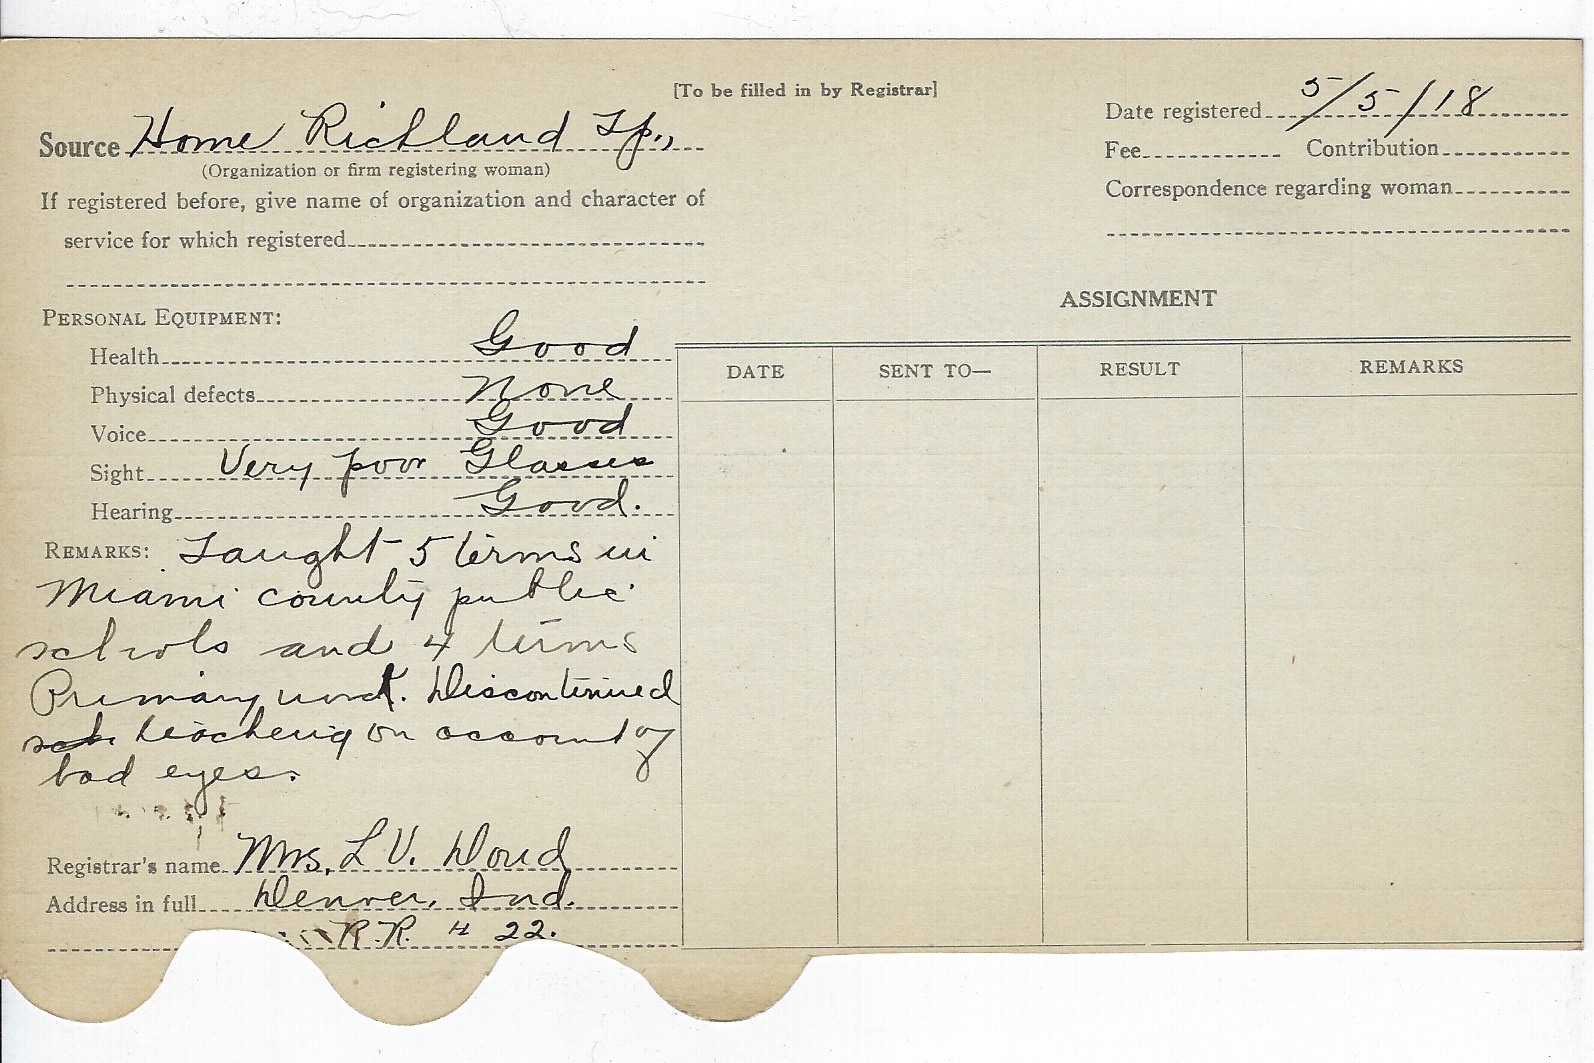 [To be filled in by Registrar]
Source Home Richland Tp.,
(Organization or firm registering woman)
If registered before, give name of organization and character of
service for which registered
Date registered 5/5/18
Fee Contribution
Correspondence regarding woman
PERSONAL EQUIPMENT:
Health Good
Physical defects None
Voice Good
Sight Very poor Glasses
Hearing Good.
REMARKS: Taught 5 terms in
Miami county public
schools and 4 terms
Primary work. Discontinued
sch teaching on account of
bad eyes.
Registrar's name Mrs. L V. Doud
Address in full Denver, Ind.
R.R. # 22.
ASSIGNMENT
DATE SENT TO— RESULT REMARKS